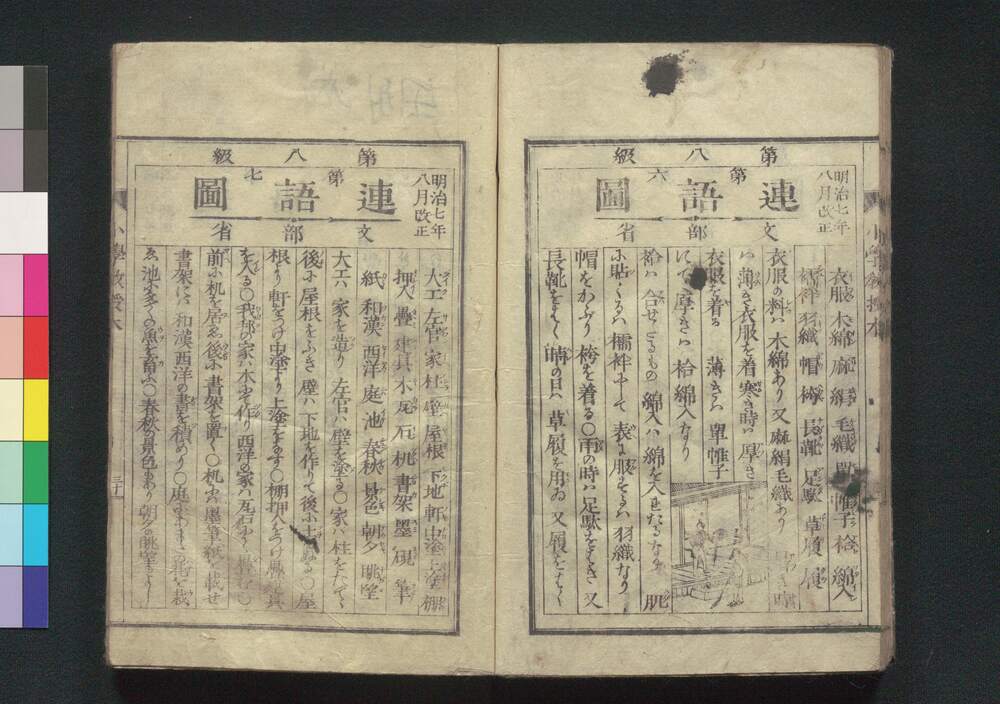 第八級
第六
連語圖
明治七年
八月改正
文部省
衣服 木綿 麻 絹 毛織 單 帷子 袷 綿入
襦袢 羽織 帽 袴 長靴 足駄 草履 履
衣服の料ハ 木綿あり 又麻絹毛織あり
ハ 薄き衣服を着 寒き時ハ 厚き
衣服を着る 薄きハ 單帷子
にて 厚きハ 袷綿入なり
袷ハ 合せたるもの 綿入ハ 綿を入れたるなり 肌
に貼くるハ 襦袢にて 表に服するハ 羽織なり
帽をかぶり 袴を着る〇雨の時ハ 足駄をはき 又
長靴をはく 晴の日ハ 草履を用ゐ 又履をはく
小學教授本
第八級
第七
連語圖
明治七年
八月改正
文部省
大工 左官 家 柱 壁 屋根 下地 軒 中塗 上塗 棚
押入 疊 建具 木 瓦 石 机 書架 墨 硯 筆
紙 和漢 西洋 庭 池 春秋 景色 朝夕 眺望
大工ハ 家を造り 左官ハ 壁を塗る〇家ハ 柱をたてゝ
後に屋根をふき 壁ハ 下地を作りて後に土 〇屋
根より軒をつけ中塗より上塗をなす〇棚押入をつけ疊建具
を入る〇我邦の家ハ木にて作り西洋の家ハ瓦石にて 〇
前に机を居ゑ後に書架を置く〇机にハ墨筆紙を載せ
書架にハ 和漢西洋の書を積めり〇庭にハ 花を栽
ゑ 池に多くの魚を畜ふ〇春秋の景色あり 朝夕の眺望よし
小學教授本
三十